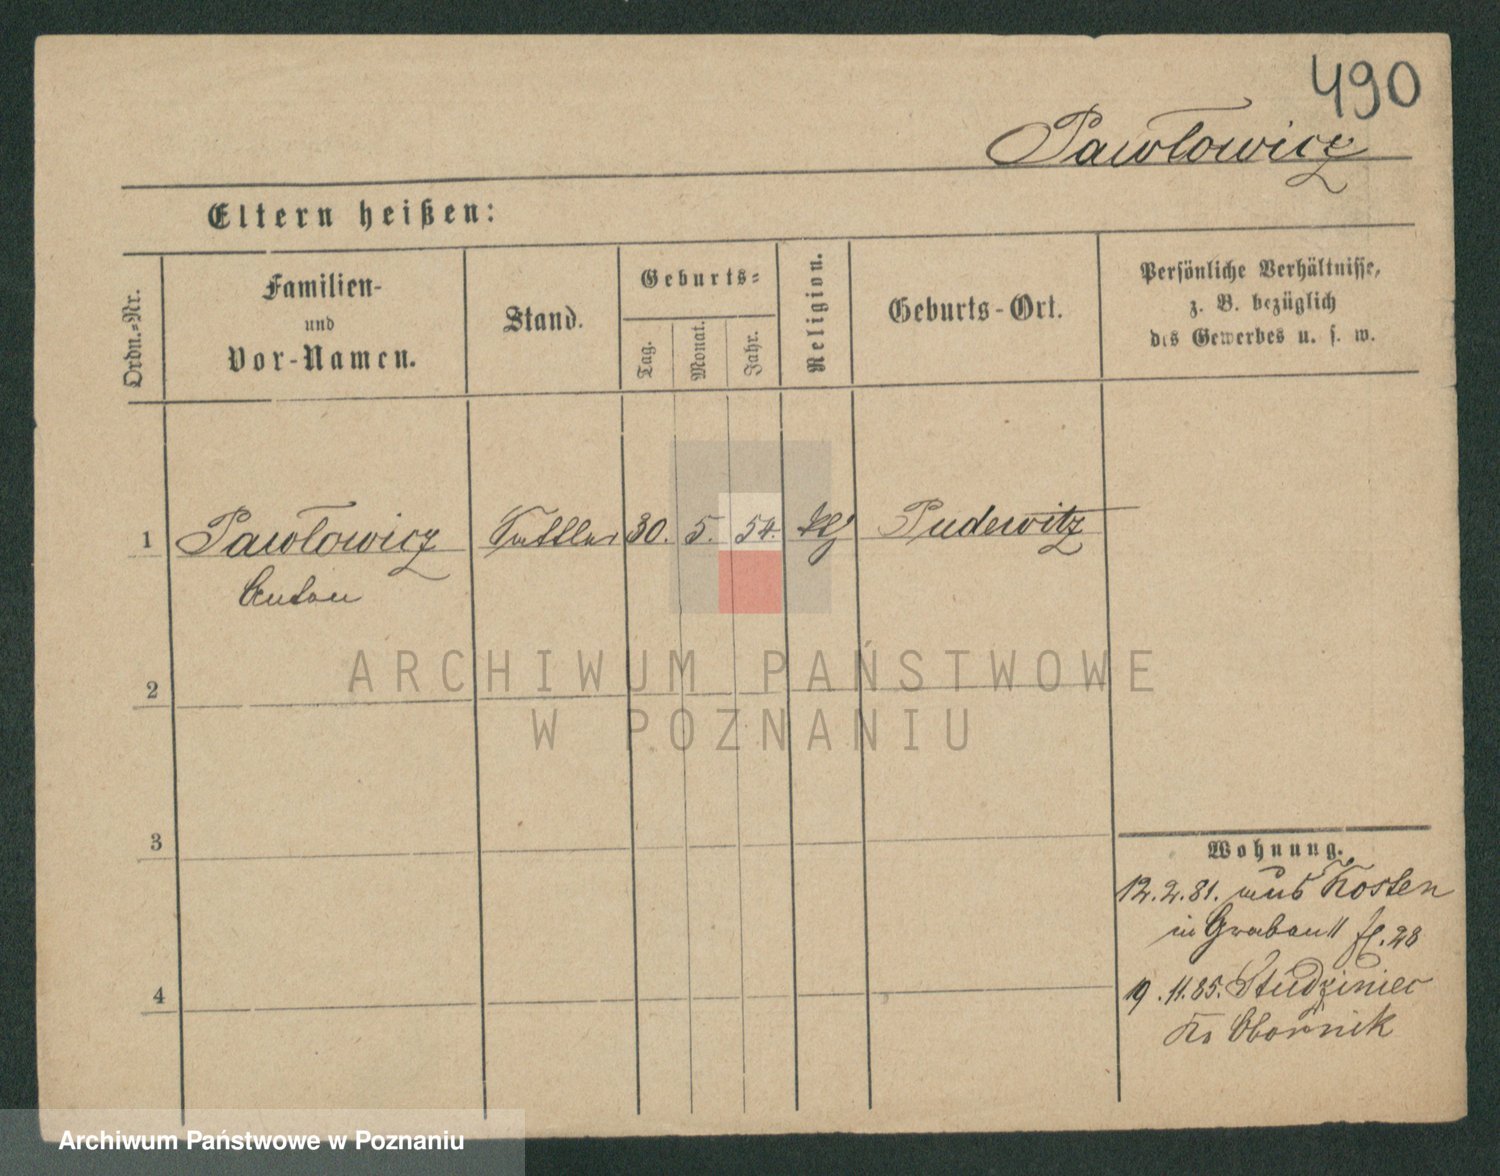 490
Pawłowicz
Eltern heißen:
Ordn.=Nr.
Familien-
und
Vor-Namen.
Stand.
Geburts=
Tag.
Monat.
Jahr.
Religion.
Geburts-Ort.
Persönliche Verhältnisse,
z. B. bezüglich
des Gewerbes u. s. w.
1 Pawłowicz Sattler 30. 5. 54. Pudewitz
Anton
2
3
4
Wohnung.
12.2.81. aus Kosten
in Graben 28
19.11.85. Studziniec
Kr Obornik
ARCHIWUM PAŃSTWOWE
W POZNANIU
Archiwum Państwowe w Poznaniu